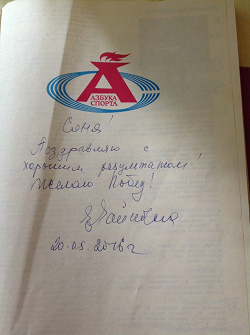 АЗБУКА
СПОРТА
Соня!
Поздравляю с
хорошим результатом!
Желаю Побед!
20.05.2016г